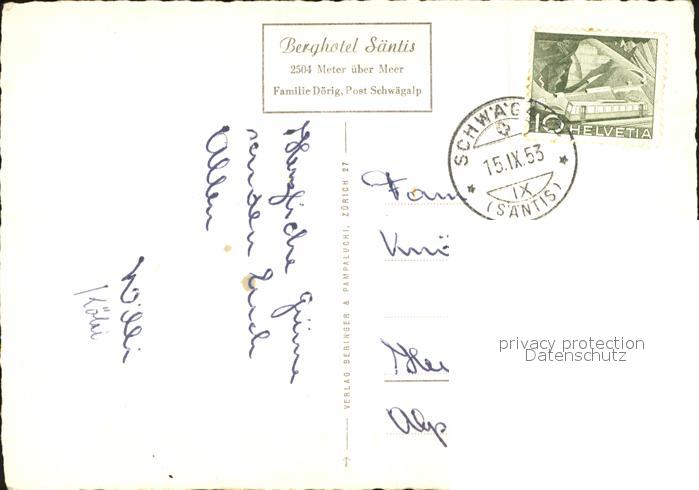 Berghotel Säntis
2504 Meter über Meer
Familie Dörig, Post Schwägalp
10 HELVETIA
SCHWÄG
15.IX.53
IX
(SÄNTIS)
Herzliche Grüsse
senden Euch
Allen
Willi
VERLAG BERINGER & PAMPALUCHI, ZÜRICH 27
Fam
Knö
Her
Alp
privacy protection
Datenschutz